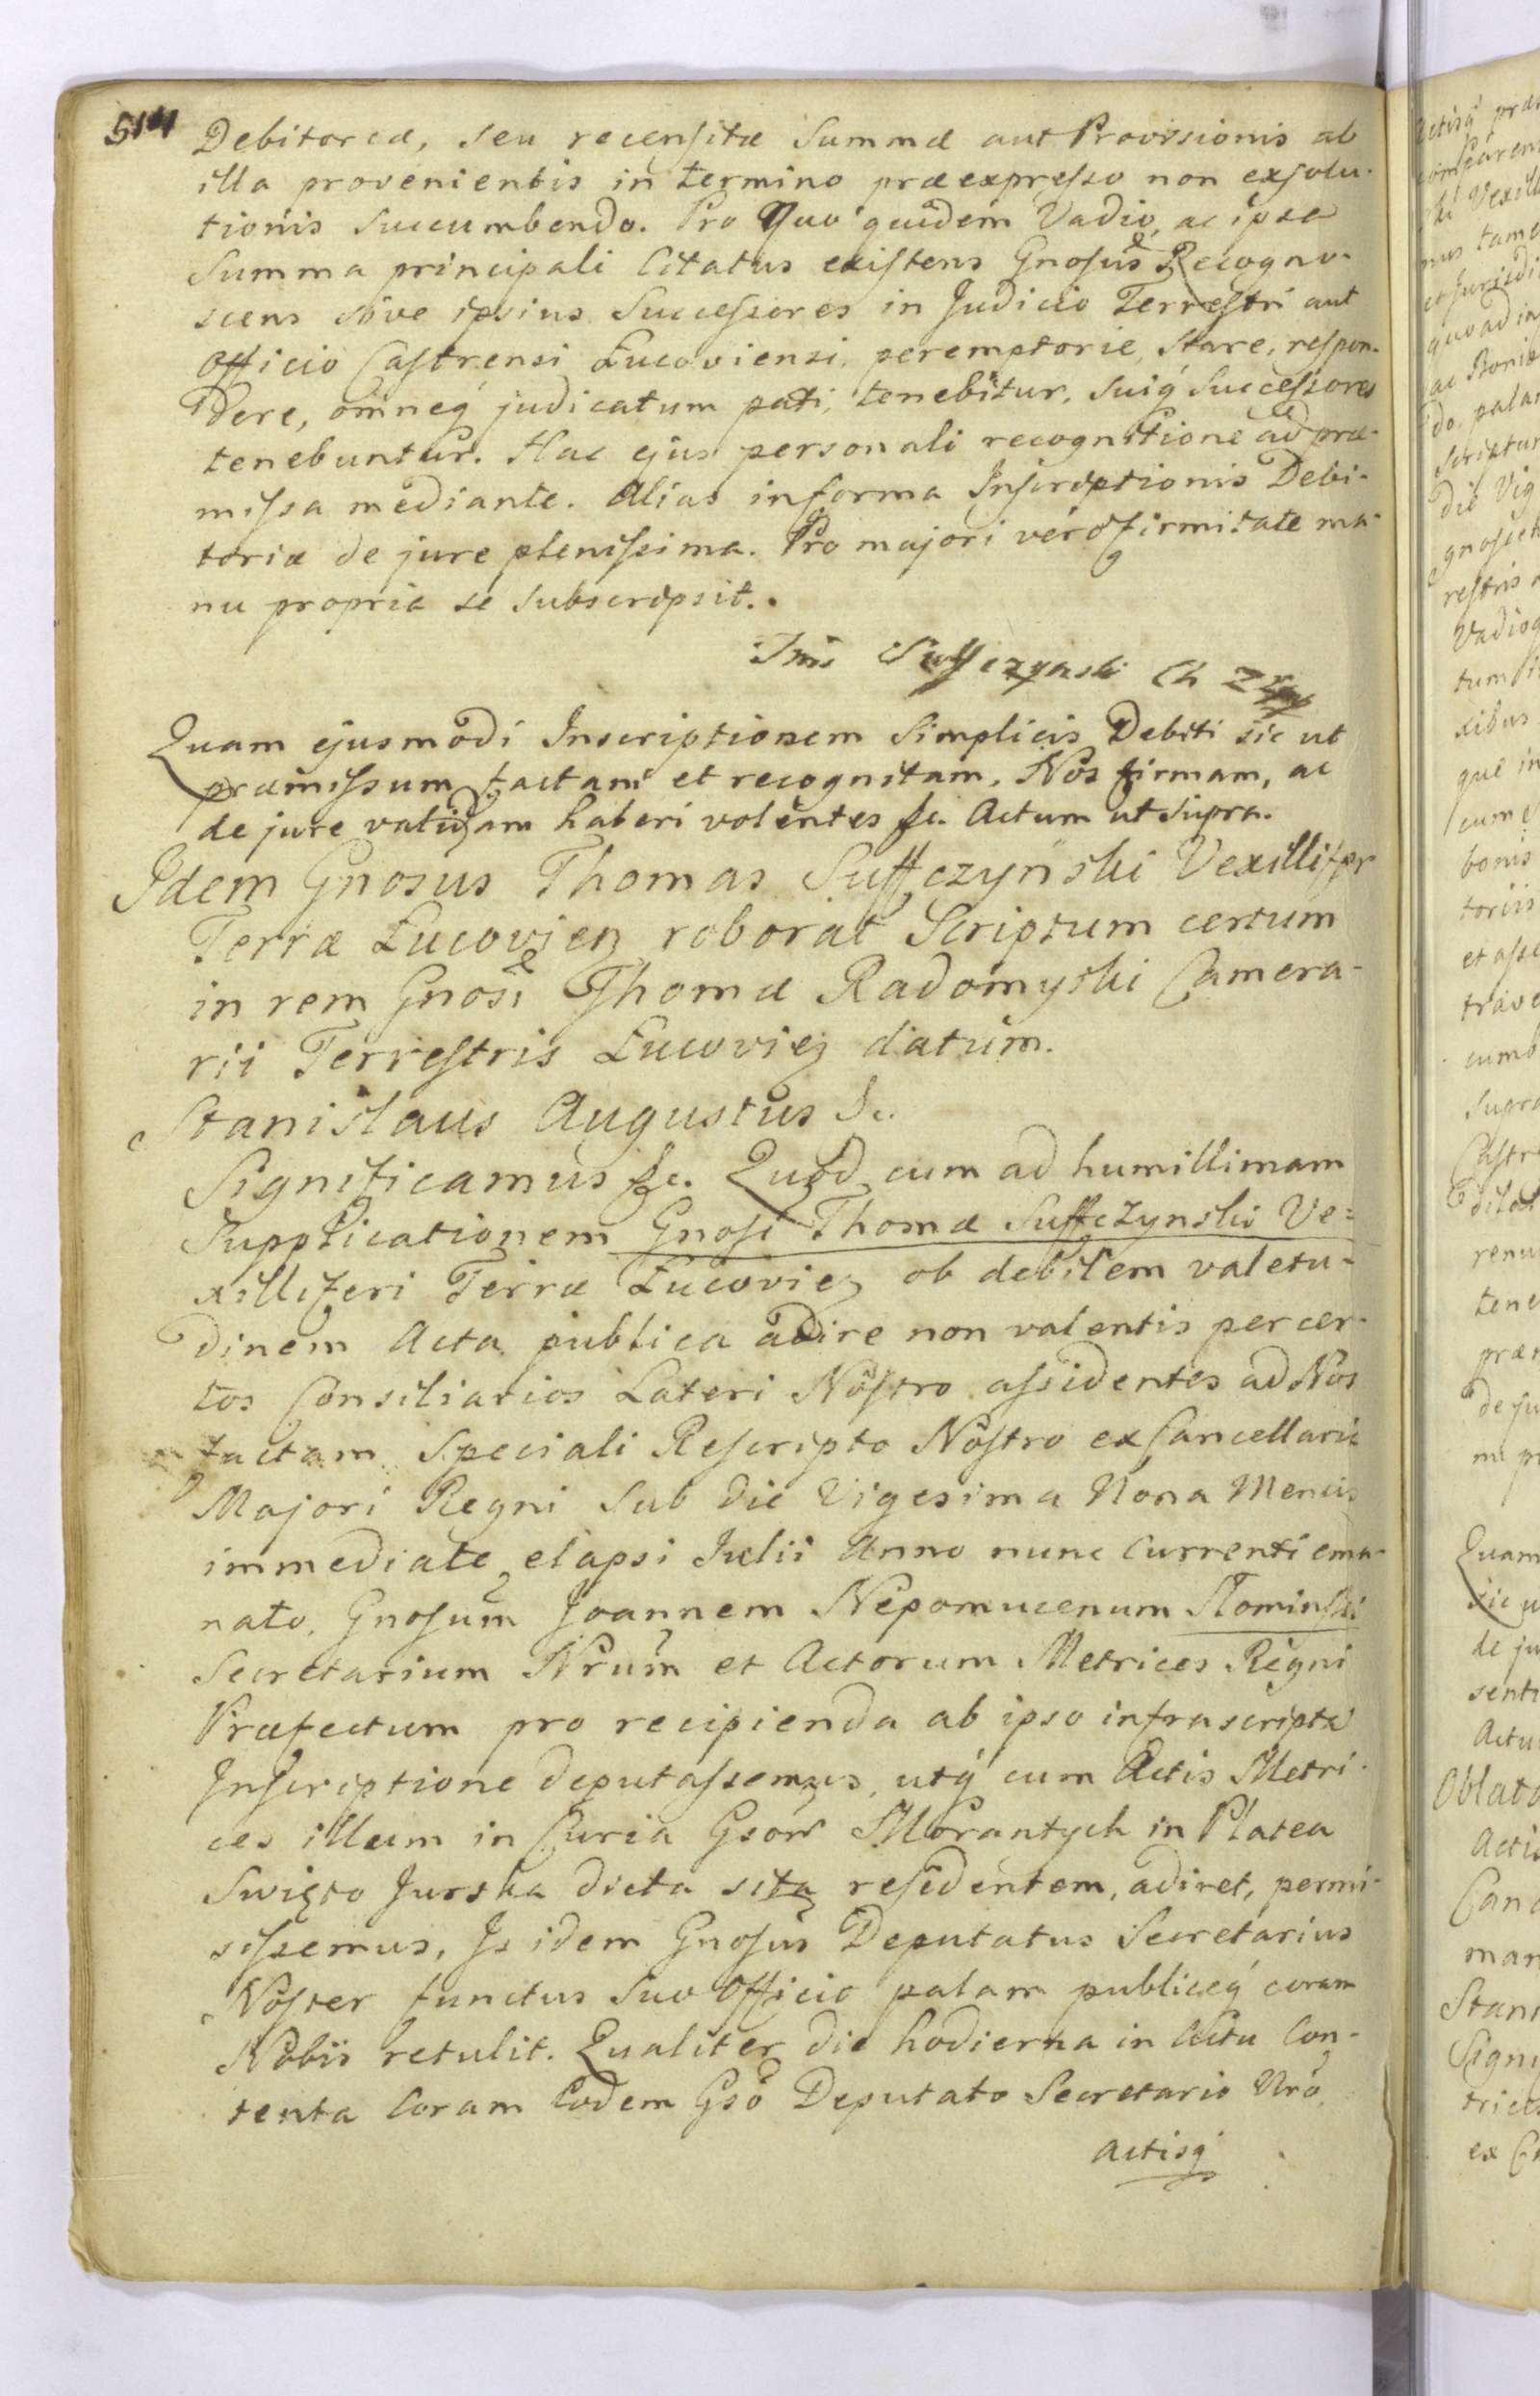 514
Debitoreæ, seu recensitæ Summæ aut Provisionis ab
illa provenientis in termino præexpresso non exsolu-
tionis succumbendo. Pro Quo quidem Vadio, ac ipsa
Summa principali Citatus existens Gnosus Recogno-
scens sive ipsius Successores in Judicio Terrestri aut
Officio Castrensi Łucoviensi, peremptorie, Stare, respon-
dere, omneq judicatum pati, tenebitur, Suiq Successores
tenebuntur. Hac ejus personali recognitione ad præ-
missa mediante. Alias in forma Inscriptionis Debi-
toriæ de jure plenissima. Pro majori vero firmitate ma-
nu propria se subscripsit.
Suffczynski Ch
Quam ejusmodi Inscriptionem Simplicis Debiti sic ut
præmissum factam et recognitam, Nos firmam, ac
de jure validam haberi volentes &c. Actum ut supra.
Idem Gnosus Thomas Suffczyński Vexillifer
Terræ Łucovien roborat Scriptum certum
in rem Gnosi Thomæ Radomyski Camera-
rii Terrestris Łucovien datum.
Stanislaus Augustus &c.
Significamus &c. Quod cum ad humillimam
Supplicationem Gnosi Thomæ Suffczynski Ve=
xilliferi Terræ Łucovien ob debilem valetu-
dinem Acta publica adire non valentis per cer-
tos Consiliarios Lateri Nostro assidentes ad Nos
factam Speciali Rescripto Nostro ex Cancellaria
Majori Regni Sub die Vigesima Nona Mensis
immediate elapsi Julii Anno nunc Currenti ema-
nato, Gnosum Joannem Nepomucenum Słominski
Secretarium Nrum et Actorum Metrices Regni
Præfectum pro recipienda ab ipso infrascripta
Inscriptione deputassemus, utq cum Actis Metri-
ces illum in Curia Gsorr Morantych in Platea
Swięto Jurska dicta sita residentem, adiret, permi-
sissemus, Is idem Gnosus Deputatus Secretarius
Noster functus Suo Officio palam publiceq coram
Nobis retulit. Qualiter die hodierna in Actu Con-
tenta Coram Eodem Gso Deputato Secretario Nro,
actisq